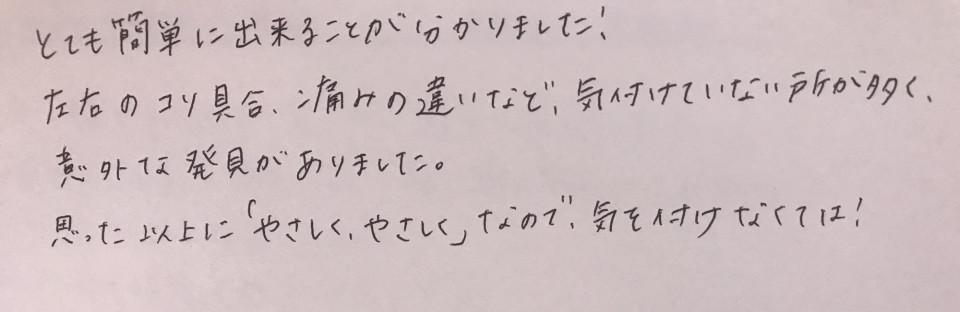 とても簡単に出来ることが分かりました!
左右のコリ具合、痛みの違いなど、気付けていない所が多く、
意外な発見がありました。
思った以上に「やさしく、やさしく」なので、気を付けなくては!